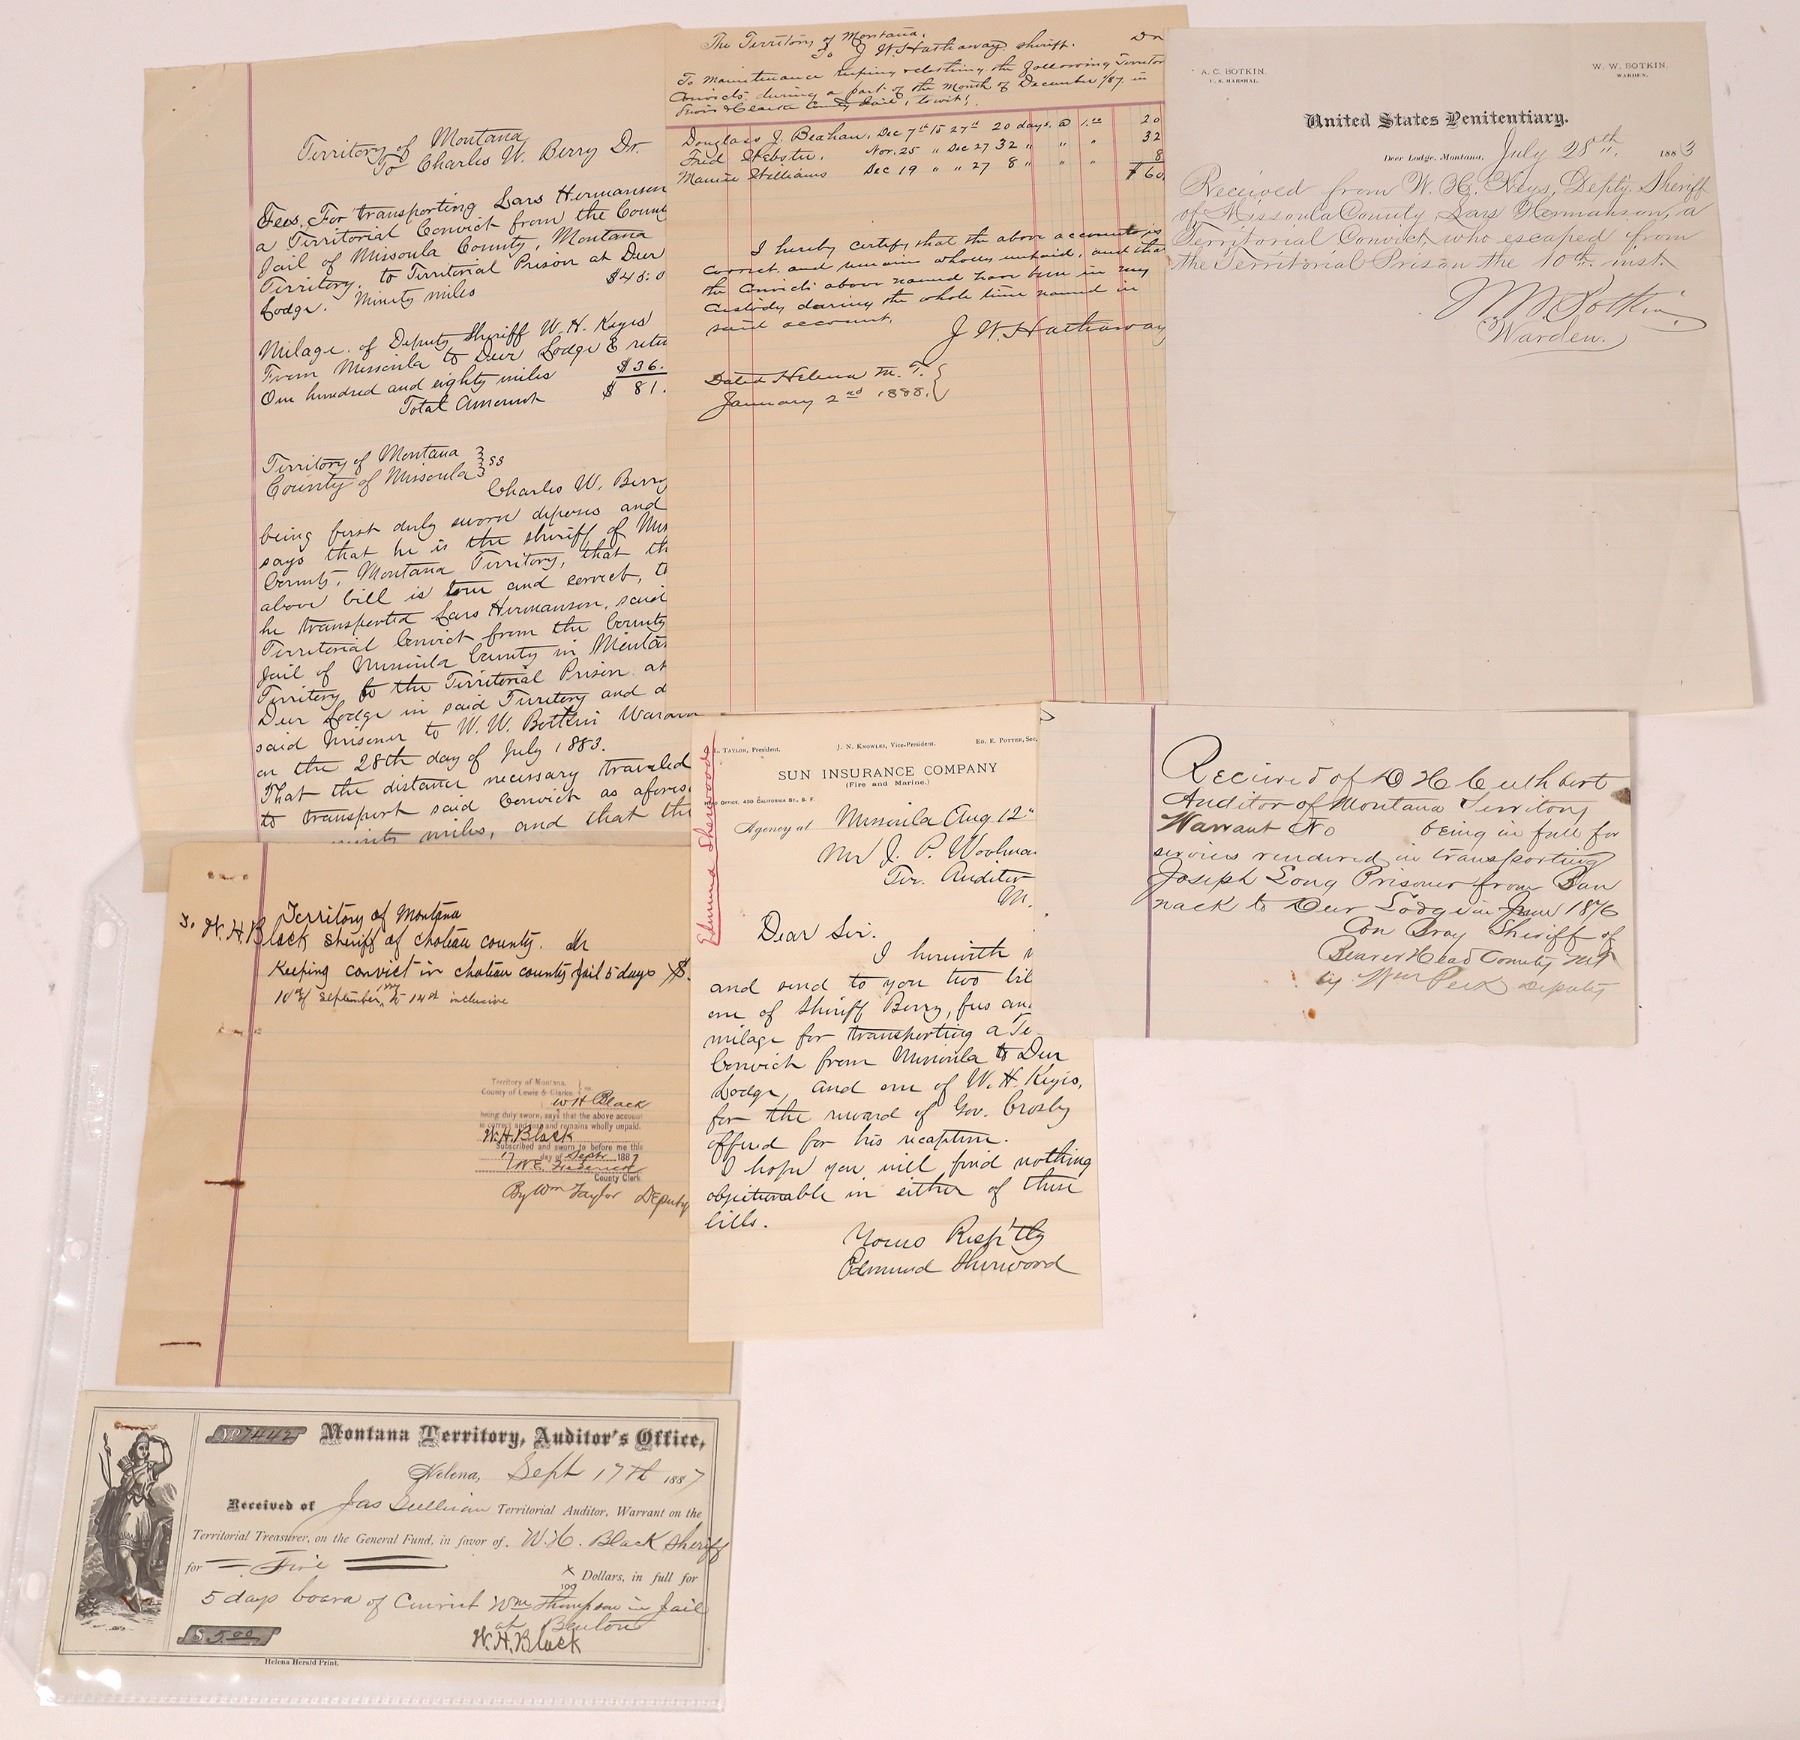 Territory of Montana
To Charles W. Berry Dr.
Fees. For transporting Lars Hermanson
a Territorial Convict from the Coun
Jail of Missoula County, Montana
Territory, to Territorial Prison at Deer
Lodge. Ninety miles $45.0
Milage. of Deputy Sheriff W. H. Keyes
From Missoula to Deer Lodge & retu
One hundred and eighty miles $36.
Total Amount $81.
Territory of Montana } ss
County of Missoula }
Charles W. Berry
being first duly sworn deposes and
says that he is the sheriff of Mis
County, Montana Territory, that th
above bill is true and correct, t
he transported Lars Hermanson, said
Territorial Convict from the County
Jail of Missoula County in Montan
Territory to the Territorial Prison at
Deer Lodge in said Territory and d
said prisoner to W. W. Botkin Warden
on the 28th day of July 1883.
That the distance necessary traveled
to transport said Convict as afores
ninety miles, and that the
The Territory of Montana.
To J W. Hathaway sheriff. Dr
To Maintenance keeping & clothing the following Territor
Convicts during a part of the Month of December 1887 in
Lewis & Clarke County Jail, to wit:
Douglass J. Beahan, Dec 7th to 27th 20 days @ 1.00 20
Fred Webster. Nov. 25 " Dec 27 32 " " " 32
Maurice Williams Dec 19 " " 27 8 " " " 8
$60
I hereby certify that the above account is
correct and remains wholly unpaid, and that
the convicts above named have been in my
custody during the whole time named in
said account.
J W. Hathaway
Dated Helena M. T. }
January 2nd 1888. }
A. C. BOTKIN,
U. S. MARSHAL.
W. W. BOTKIN,
WARDEN.
United States Penitentiary.
Deer Lodge, Montana, July 28th, 1883
Received from W. H. Keys, Depty. Sheriff
of Missoula County Lars Hermanson, a
Territorial Convict who escaped from
the Territorial Prison the 10th inst.
W W Botkin
Warden.
Edmund Sherwoods
L. TAYLOR, President.
J. N. KNOWLES, Vice-President.
ED. E. POTTER, Sec.
SUN INSURANCE COMPANY
(Fire and Marine.)
OFFICE, 450 CALIFORNIA ST., S. F.
Agency at Missoula Aug 12"
Mr J. P. Woolma
Ter. Auditor
M.
Dear Sir.
I herewith
and send to you two bil
one of Sheriff Berry, fees an
milage for transporting a Te
Convict from Missoula to Deer
Lodge, and one of W. H. Keyes,
for the reward of Gov. Crosby
offered for his recaption.
I hope you will find nothing
objectionable in either of these
bills.
Yours Resp'tly
Edmund Sherwood
Recieved of D H Cuthbert
Auditor of Montana Territory
Warrant No being in full for
services rendered in transporting
Joseph Long Prisoner from Ban
nack to Deer Lodge in June 1876
Con Bray Sheriff of
Beaver Head County M T
by Wm Peck Deputy
Territory of Montana
To W. H. Black sheriff of choteau county. Dr
Keeping convict in choteau county jail 5 days $.
10th of September, to 14th inclusive
Territory of Montana. } ss.
County of Lewis & Clarke }
W H Black
being duly sworn, says that the above account
is correct and remains wholly unpaid.
W. H. Black
Subscribed and sworn to before me this
17 day of Septr 1887
County Clerk
By Wm Taylor Deputy
No 7442 Montana Territory, Auditor's Office,
Helena, Sept 17th 1887
Received of Jas Sullivan Territorial Auditor, Warrant on the
Territorial Treasurer, on the General Fund, in favor of W. H. Black Sheriff
for Five x/100 Dollars, in full for
5 days board of Convict Wm Thompson in Jail
at Benton
$5.00 W. H. Black
Helena Herald Print.